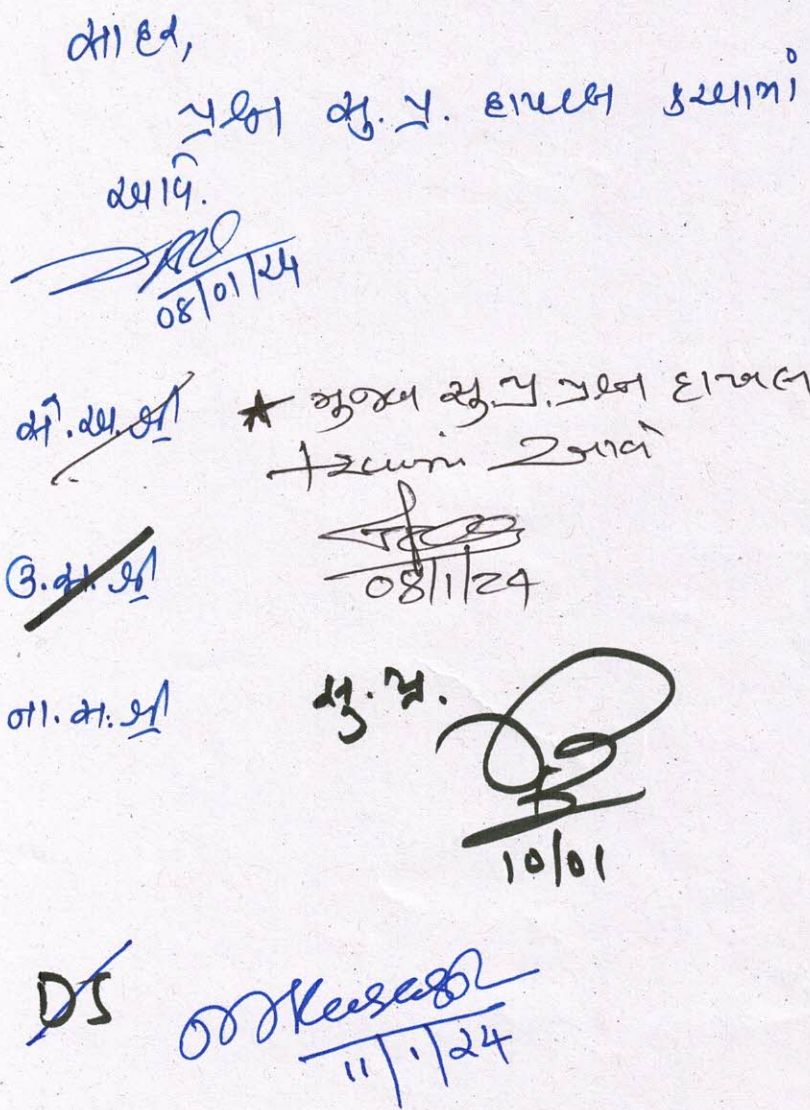 સાદર,
પ્રશ્ન સુ. પ્ર. દાખલ કરવામાં
આવે.
08/01/24
સે.અ.શ્રી
★ મુજબ સુ.પ્ર.પ્રશ્ન દાખલ
કરવામાં આવે
08/1/24
ઉ.સ.શ્રી
ના.સ.શ્રી
સુ.પ્ર.
10/01
DS
11/1/24